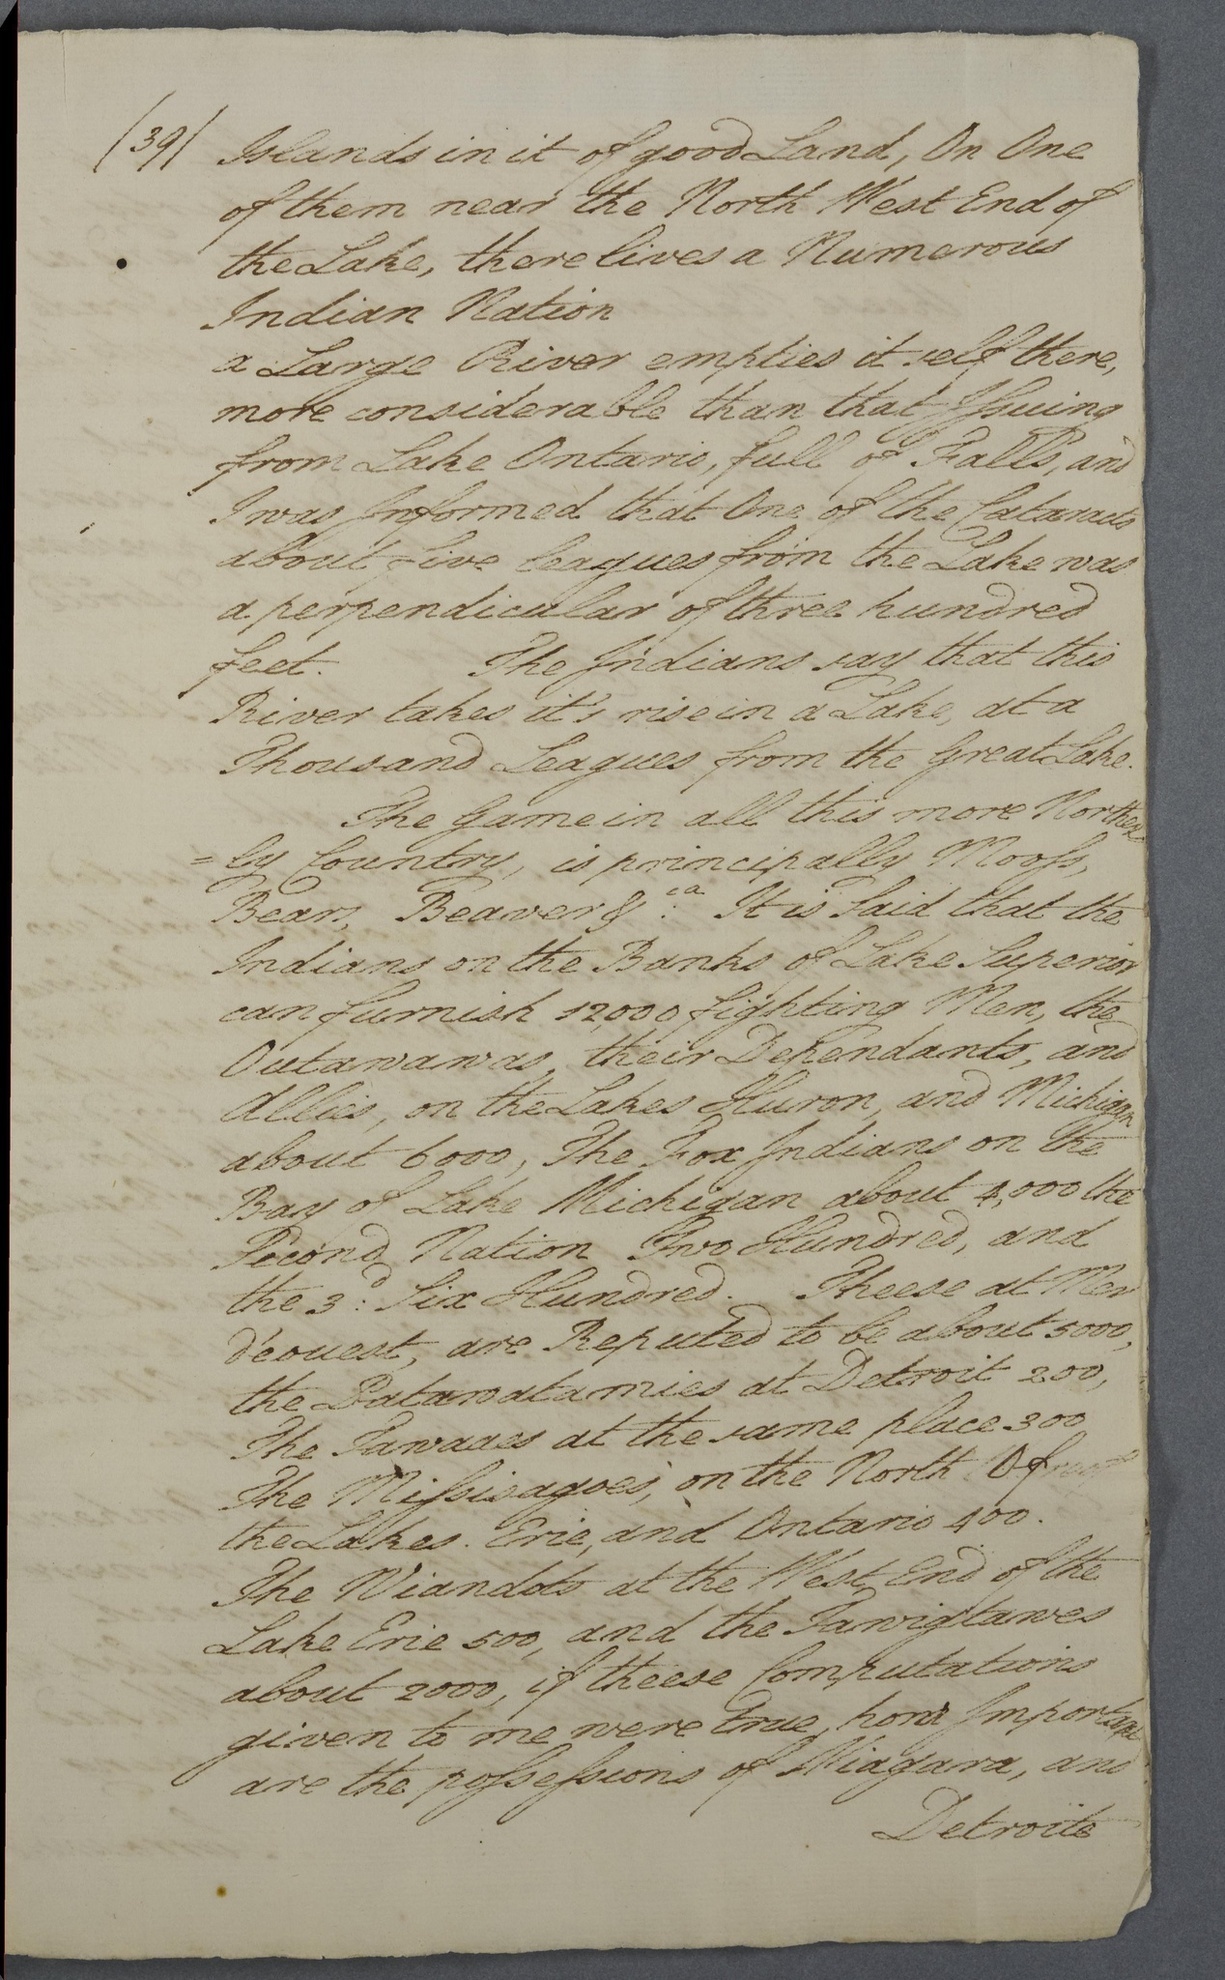 (39) Islands in it of good Land, On One
of them near the North West End of
the Lake, there lives a Numerous
Indian Nation
a Large River empties it self there,
more considerable than that Issuing
from Lake Ontario, full of Falls, and
I was Informed that One of the Cataracts
about five leagues from the Lake was
a perpendicular of three hundred
feet. The Indians say that this
River takes it's rise in a Lake, at a
Thousand Leagues from the Great Lake.
The Game in all this more Norther
=ly Country, is principally Mooss,
Bears, Beaver &:ca It is Said that the
Indians on the Banks of Lake Superior
can furnish 12,000 fighting Men, the
Outawawas, their Dependants, and
Allies, on the Lakes Huron, and Michigan
about 6000, The Fox Indians on the
Bay of Lake Michigan about 4,000 the
Second Nation Two Hundred, and
the 3:d Six Hundred. Theese at Mer
d'ouest, are Reputed to be about 5000,
the Patawatamies at Detroit 200,
The Tawaaes at the same place 300
The Missisagoes, on the North Of
the Lakes. Erie, and Ontario 400.
The Wiandots at the West End of the
Lake Erie 500, and the Tawigtawes
about 2000, if theese Computations
given to me were true, how Important
are the possessions of Niagara, and
Detroite